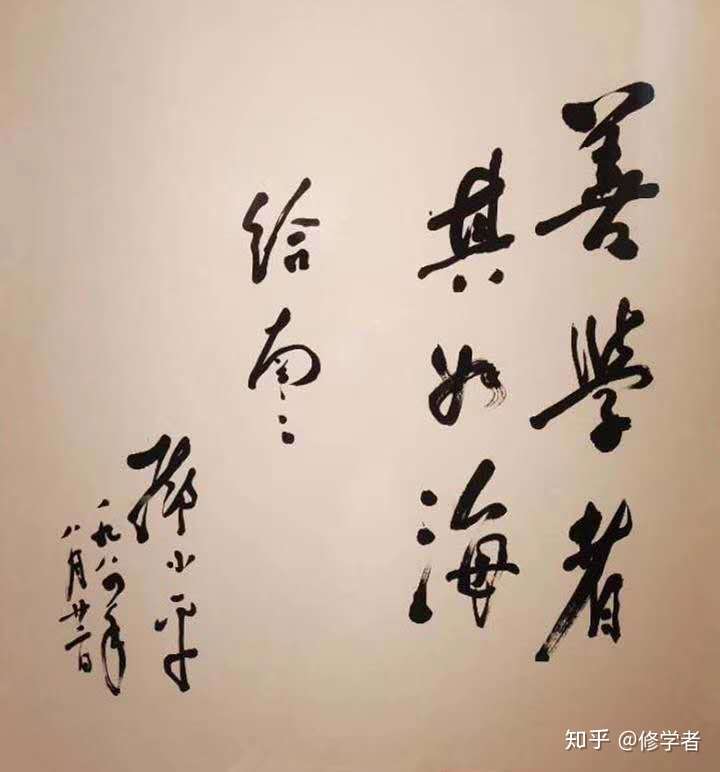 善學者
其如海
给南南
鄧小平
一九八〇年
八月廿二日
知乎 @修学者